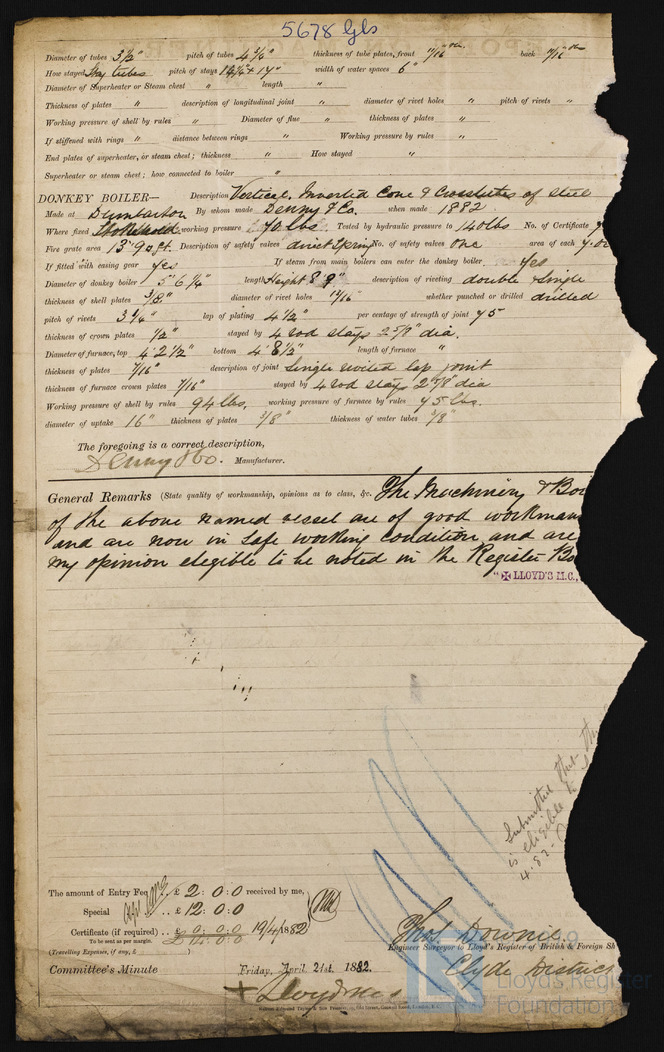 5678 Gls
Diameter of tubes 3½" pitch of tubes 4¾" thickness of tube plates, front 11/16 ths back 11/16 ths
How stayed Stay tubes pitch of stays 14" width of water spaces 6"
Diameter of Superheater or Steam chest " length "
Thickness of plates " description of longitudinal joint " diameter of rivet holes " pitch of rivets "
Working pressure of shell by rules " Diameter of flue " thickness of plates "
If stiffened with rings " distance between rings " Working pressure by rules "
End plates of superheater, or steam chest; thickness " How stayed "
Superheater or steam chest; how connected to boiler "
DONKEY BOILER— Description Vertical, Inverted Cone & Crosstubes of steel
Made at Dumbarton By whom made Denny & Co. when made 1882
Where fixed Stokehold working pressure 70 lbs. Tested by hydraulic pressure to 140 lbs No. of Certificate
Fire grate area 13.9 oft. Description of safety valves direct spring No. of safety valves One area of each 7.0
If fitted with easing gear Yes If steam from main boilers can enter the donkey boiler Yes
Diameter of donkey boiler 5' 6¾" length Height 8' 9" description of riveting double & single
thickness of shell plates 3/8" diameter of rivet holes 13/16" whether punched or drilled drilled
pitch of rivets 3¼" lap of plating 4½" per centage of strength of joint 75
thickness of crown plates ½" stayed by 4 rod stays 2⅞" dia.
Diameter of furnace, top 4' 2½" bottom 4' 8½" length of furnace "
thickness of plates 7/16" description of joint Single riveted lap joint
thickness of furnace crown plates 7/16" stayed by 4 rod stays 2⅞" dia
Working pressure of shell by rules 94 lbs, working pressure of furnace by rules 75 lbs.
diameter of uptake 16" thickness of plates 3/8" thickness of water tubes 3/8"
The foregoing is a correct description,
Denny & Co. Manufacturer.
General Remarks (State quality of workmanship, opinions as to class, &c. The Machinery & Boi
of the above named vessel are of good workman
and are now in safe working condition and are
my opinion elegible to be noted in the Register Bo
"✠ LLOYD'S M.C.,
Submitted that th
is eligible to
4.82.
The amount of Entry Fee .. £ 2 : 0 : 0 received by me,
Special .. £ 12 : 0 : 0
Certificate (if required) .. £ 0 : 0 : 0 19/4/1882
To be sent as per margin. £ 14 : 0 : 0
(Travelling Expenses, if any, £ )
Thos Downie
Engineer Surveyor to Lloyd's Register of British & Foreign Sh
Clyde District
Committee's Minute Friday, April 21st, 1882.
Lloyd's Register
Foundation